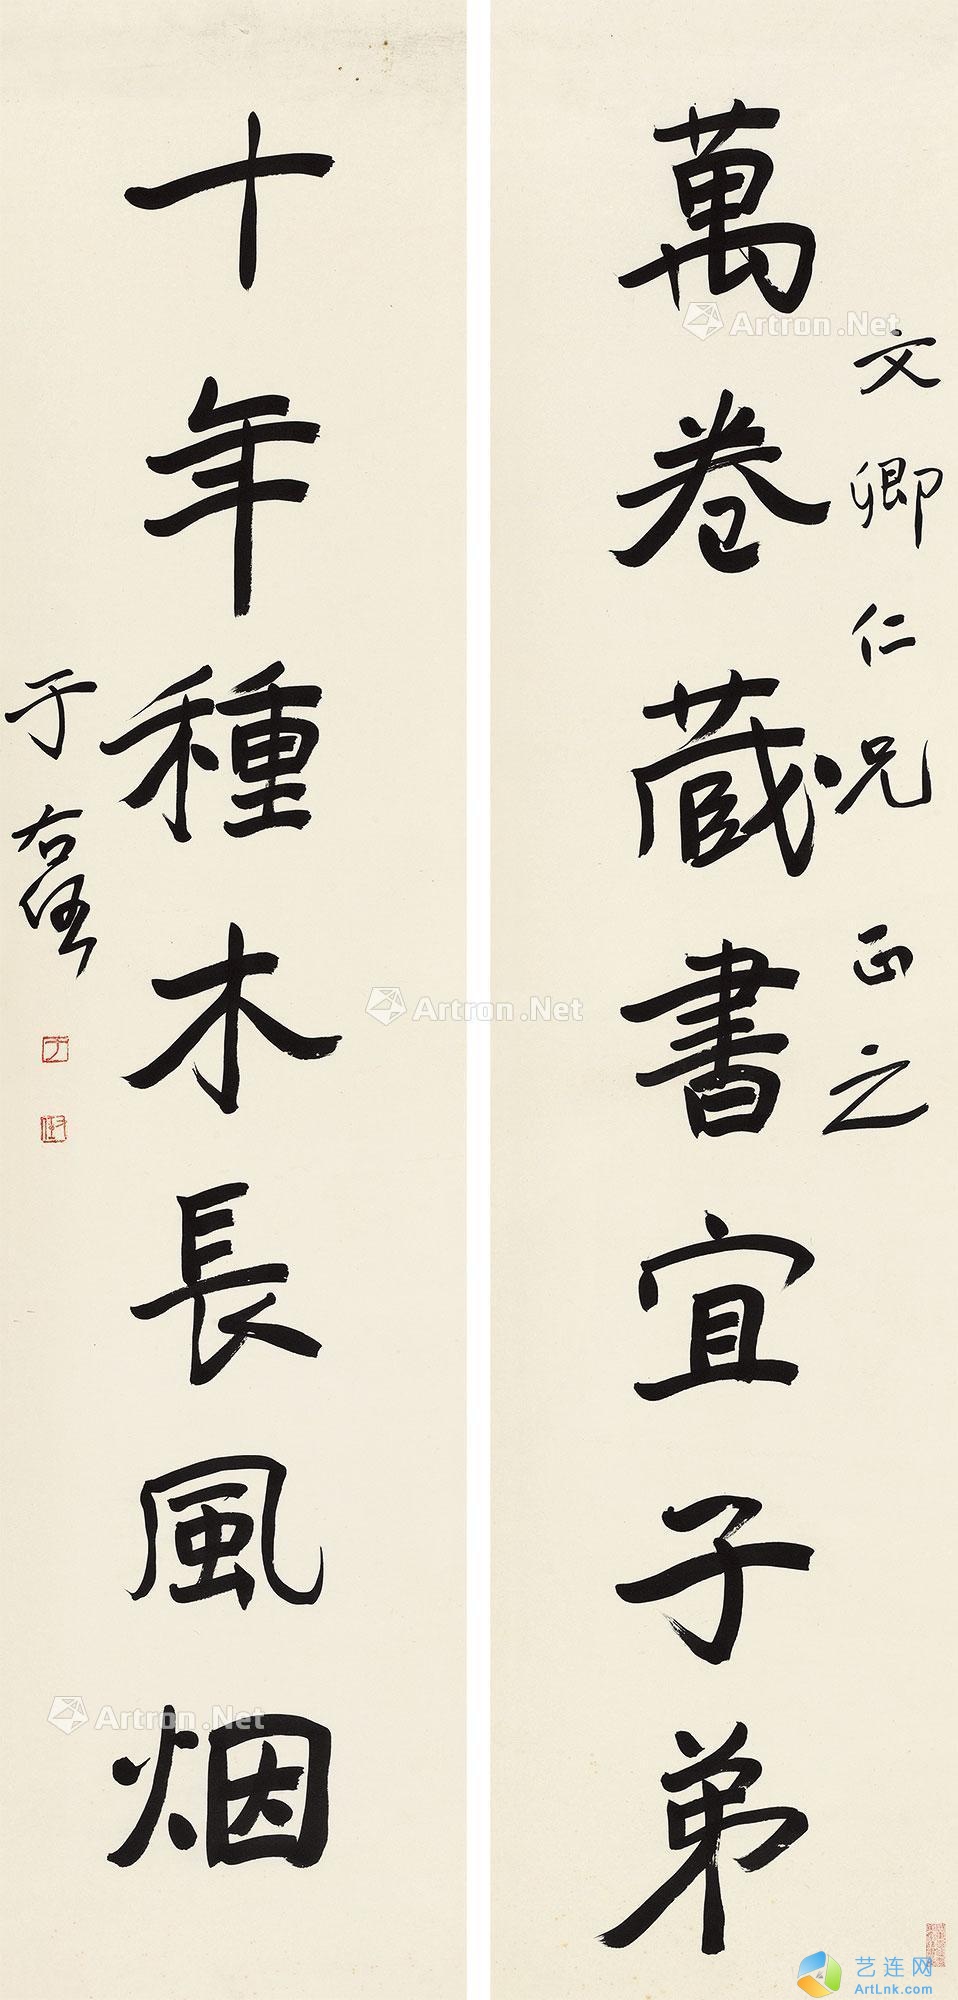 萬卷藏書宜子弟
文卿仁兄正之
十年種木長風烟
于右任
Artron.Net
Artron.Net
Artron.Net
艺连网
ArtLnk.com